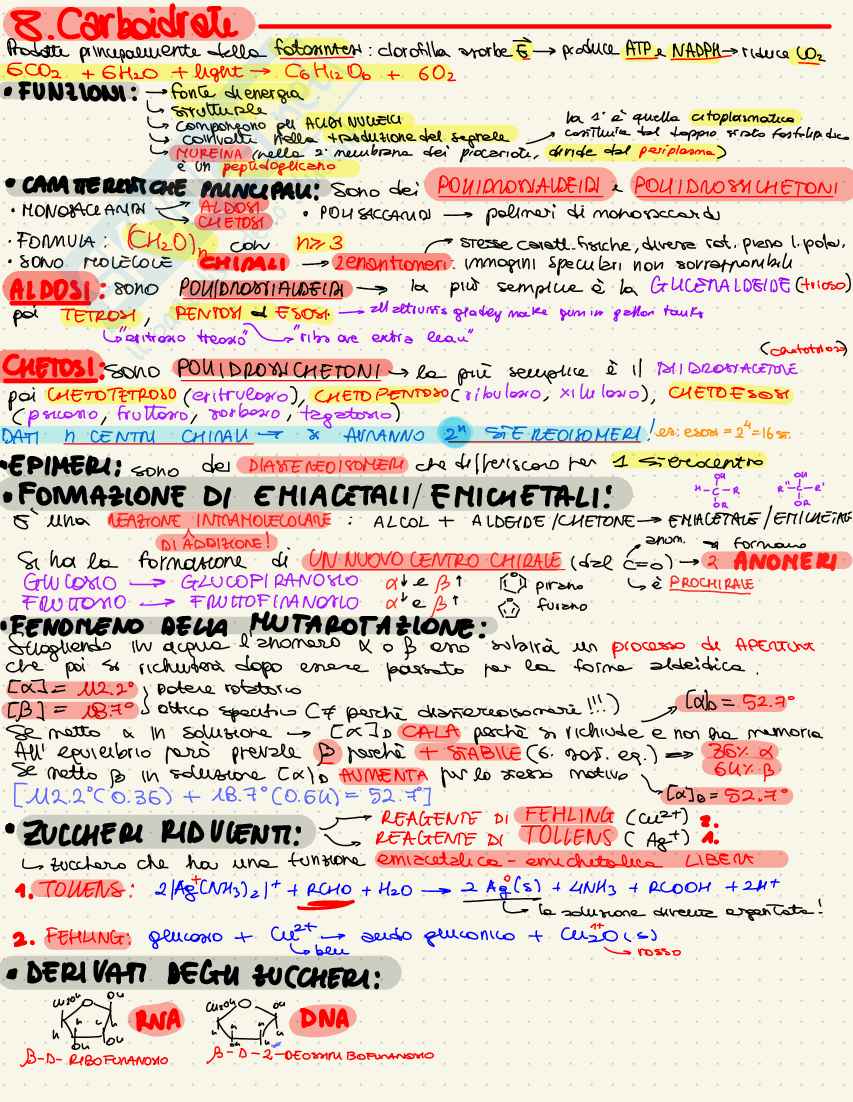 8. Carboidrati
Prodotti principalmente dalla fotosintesi: clorofilla assorbe E → produce ATP e NADPH → riduce CO2
6CO2 + 6H2O + light → C6H12O6 + 6O2
• FUNZIONI: → fonte di energia
→ strutturale
→ compongono gli ACIDI NUCLEICI
→ coinvolti nella traduzione del segnale
→ MUREINA (nella 2ª membrana dei procarioti, divide dal periplasma)
è un peptidoglicano
la 1ª è quella citoplasmatica
costituita dal doppio strato fosfolipidico
• CARATTERISTICHE PRINCIPALI: Sono dei POLIIDROSSIALDEIDI e POLIIDROSSICHETONI
• MONOSACCARIDI → ALDOSI
→ CHETOSI
• POLISACCARIDI → polimeri di monosaccaridi
• FORMULA: (CH2O)n con n≥3
→ stesse caratt. fisiche, diversa rot. piano l. polar.
• SONO MOLECOLE CHIRALI → 2 enantiomeri: immagini speculari non sovrapponibili
ALDOSI: sono POLIIDROSSIALDEIDI → la più semplice è la GLICERALDEIDE (trioso)
poi TETROSI, PENTOSI ed ESOSI → all altruists gladly make gum in gallon tanks
"eritroso treoso" "ribs are extra lean"
CHETOSI: sono POLIIDROSSICHETONI → la più semplice è il DIIDROSSIACETONE
(chetotrioso)
poi CHETOTETROSO (eritruloso), CHETOPENTOSO (ribuloso, xiluloso), CHETOESOSI
(psicosio, fruttosio, sorbosio, tagatosio)
DATI n CENTRI CHIRALI → si AVRANNO 2ⁿ STEREOISOMERI! es: esosi = 2⁴ = 16 si.
• EPIMERI: sono dei DIASTEREOISOMERI che differiscono per 1 stereocentro
• FORMAZIONE DI EMIACETALI/EMICHETALI!
OH OH
H-C-R R"-C-R'
OR OR
È una REAZIONE INTRAMOLECOLARE: ALCOL + ALDEIDE/CHETONE → EMIACETALE/EMICHETALE
DI ADDIZIONE!
anom. si formano
Si ha la formazione di UN NUOVO CENTRO CHIRALE (dal C=O) → 2 ANOMERI
GLUCOSIO → GLUCOPIRANOSIO α↓ e β↑ pirano
è PROCHIRALE
FRUTTOSIO → FRUTTOFURANOSIO α↓ e β↑ furano
• FENOMENO DELLA MUTAROTAZIONE:
Sciogliendo in acqua l'anomero α o β esso subirà un processo di APERTURA
che poi si richiuderà dopo essere passato per la forma aldeidica.
[α] = 112.2° potere rotatorio
[β] = 18.7° ottico specifico (≠ perché diastereoisomeri!!!)
[α]D = 52.7°
Se metto α in soluzione → [α]D CALA perché si richiude e non ha memoria
All'equilibrio però prevale β perché + STABILE (6. pos. eq.) ⇒ 36% α
64% β
Se metto β in soluzione [α]D AUMENTA per lo stesso motivo
[α]D = 52.7°
[112.2°(0.36) + 18.7°(0.64) = 52.7°]
• ZUCCHERI RIDUCENTI: → REAGENTE DI FEHLING (Cu²⁺) 2.
→ REAGENTE DI TOLLENS (Ag⁺) 1.
↳ zucchero che ha una funzione emiacetalica - emichetalica LIBERA
1. TOLLENS: 2[Ag⁺(NH3)2]⁺ + RCHO + H2O → 2 Ag⁰(s) + 4NH3 + RCOOH + 2H⁺
↳ la soluzione diventa argentata!
2. FEHLING: glucosio + Cu²⁺ → acido gluconico + Cu2O(s)
1+
↳ blu
↳ rosso
• DERIVATI DEGLI ZUCCHERI:
CH2OH O OH CH2OH O OH
RNA DNA
H OH OH OH H
β-D-RIBOFURANOSIO β-D-2-DEOSSIRIBOFURANOSIO